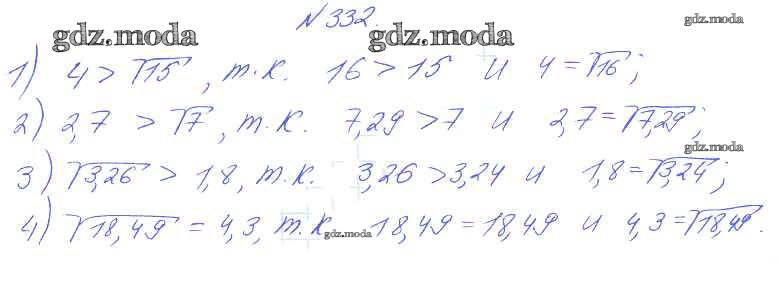 N 332.
gdz.moda gdz.moda gdz.moda
1) 4 > √15, т.к. 16 > 15 и 4 = √16;
2) 2,7 > √7, т.к. 7,29 > 7 и 2,7 = √7,29;
gdz.moda
3) √3,26 > 1,8, т.к. 3,26 > 3,24 и 1,8 = √3,24;
4) √18,49 = 4,3, т.к. 18,49 = 18,49 и 4,3 = √18,49.
gdz.moda